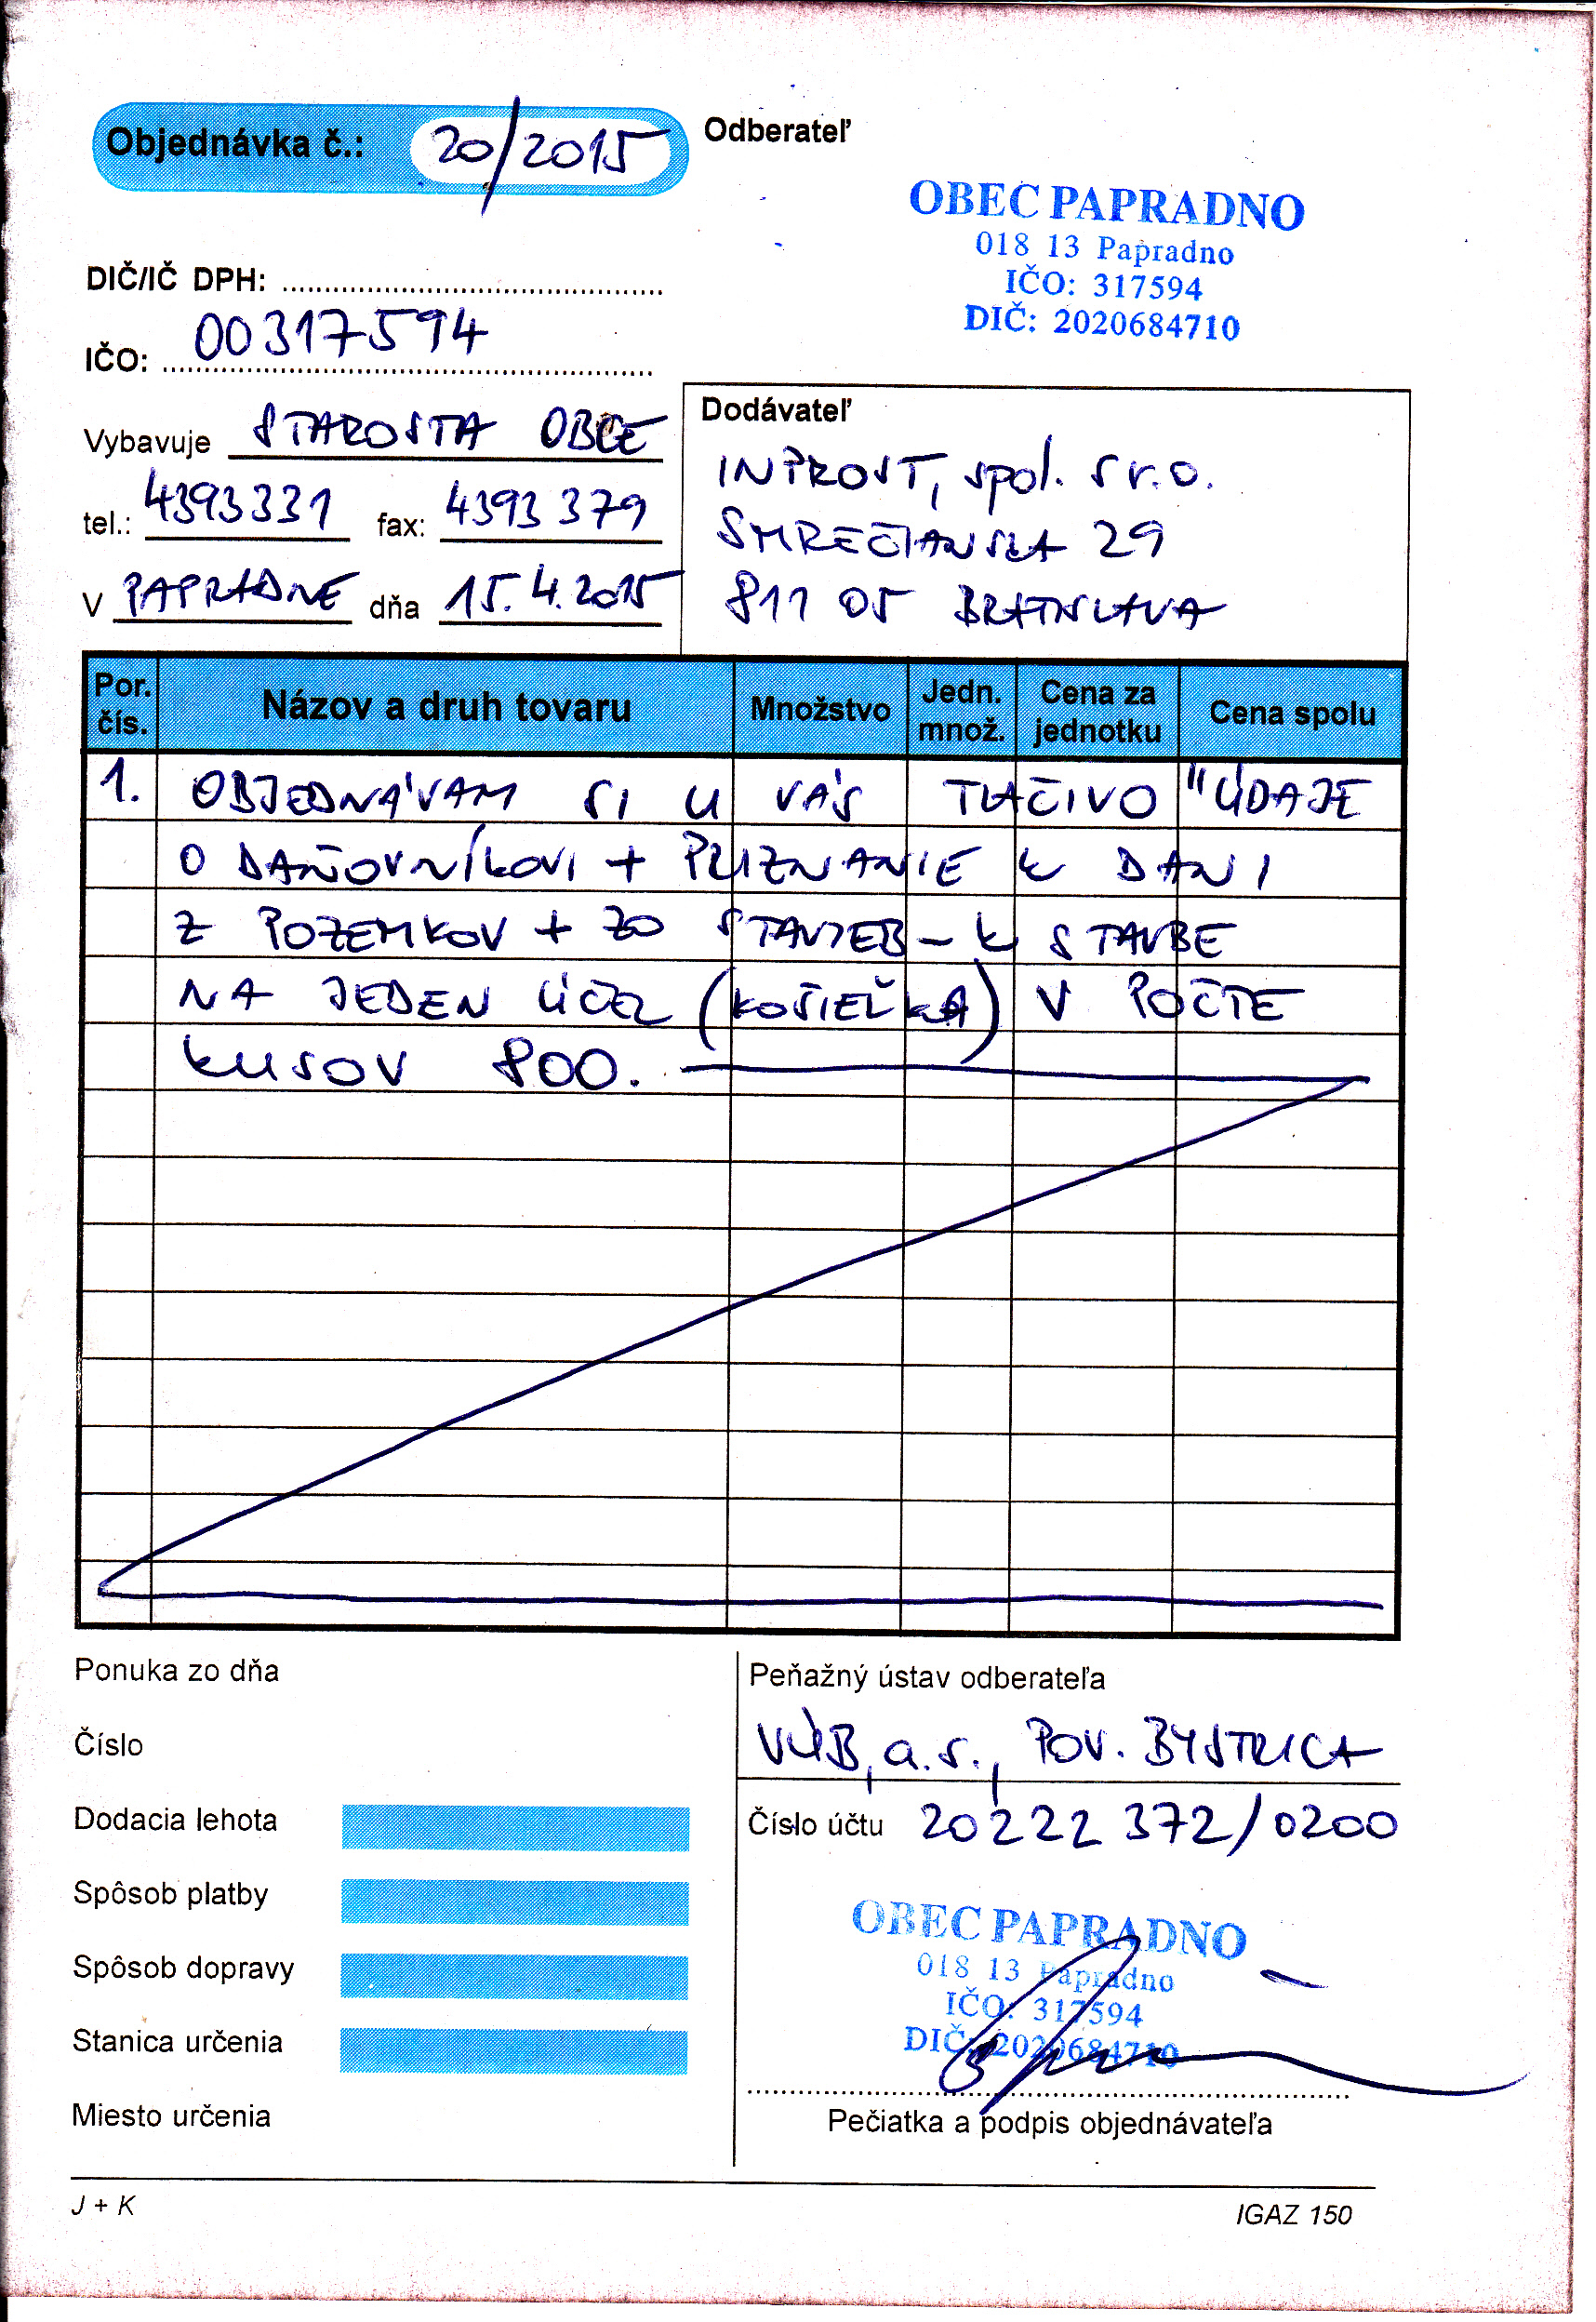 Objednávka č.: 20/2015
Odberateľ
OBEC PAPRADNO
018 13 Papradno
IČO: 317594
DIČ: 2020684710
DIČ/IČ DPH:
IČO: 00317594
Vybavuje STAROSTA OBCE
tel.: 4393331 fax: 4393 379
V PAPRADNE dňa 15.4.2015
Dodávateľ
INPROST, spol. s r.o.
SMREČIANSKA 29
811 05 BRATISLAVA
Por. čís. Názov a druh tovaru Množstvo Jedn. množ. Cena za jednotku Cena spolu
1. OBJEDNÁVAM SI U VÁS TLAČIVO "ÚDAJE
O DAŇOVNÍKOVI + PRIZNANIE K DANI
Z POZEMKOV + ZO STAVIEB - K STAVBE
NA JEDEN ÚČEL (KOŠIEĽKA) V POČTE
KUSOV 800.
Ponuka zo dňa
Číslo
Dodacia lehota
Spôsob platby
Spôsob dopravy
Stanica určenia
Miesto určenia
Peňažný ústav odberateľa
VÚB, a.s., POV. BYSTRICA
Číslo účtu 20222 372/0200
OBEC PAPRADNO
018 13 Papradno
IČO: 317594
DIČ: 2020684710
Pečiatka a podpis objednávateľa
J + K
IGAZ 150